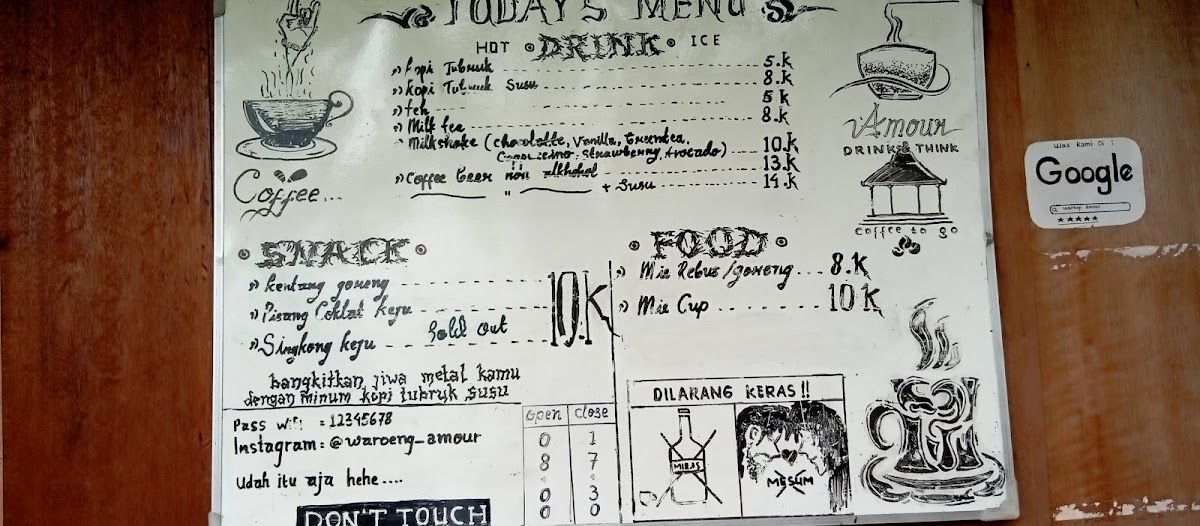 TODAY'S MENU
HOT • DRINK • ICE
» Kopi Tubruk 5.k
» Kopi Tubruk Susu 8.k
» teh 5 k
» Milk tea 8.k
Milkshake (Chocolatte, Vanilla, Greentea,
Cappucino, Strawberry, Avocado) 10.k
» Coffee beer non alkhohol 13.k
" + Susu 14.k
Coffee...
Amour
DRINK & THINK
coffee to go
Uлas kami Di :
Google
warkop amour
★★★★★
• SNACK •
» Kentang goreng
» Pisang Coklat keju
» Singkong keju Sold out
10.K
• FOOD •
» Mie Rebus/goreng ... 8.K
» Mie Cup 10 K
bangkitkan jiwa metal kamu
dengan minum kopi tubruk susu
Pass wifi : 12345678
Instagram : @waroeng_amour
Udah itu aja hehe....
DON'T TOUCH
open close
0 1
8 7
0 3
0 0
DILARANG KERAS !!
MIRAS
MESUM